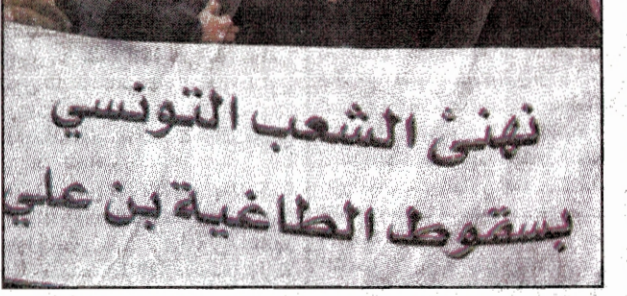 نهنئ الشعب التونسي
بسقوط الطاغية بن علي